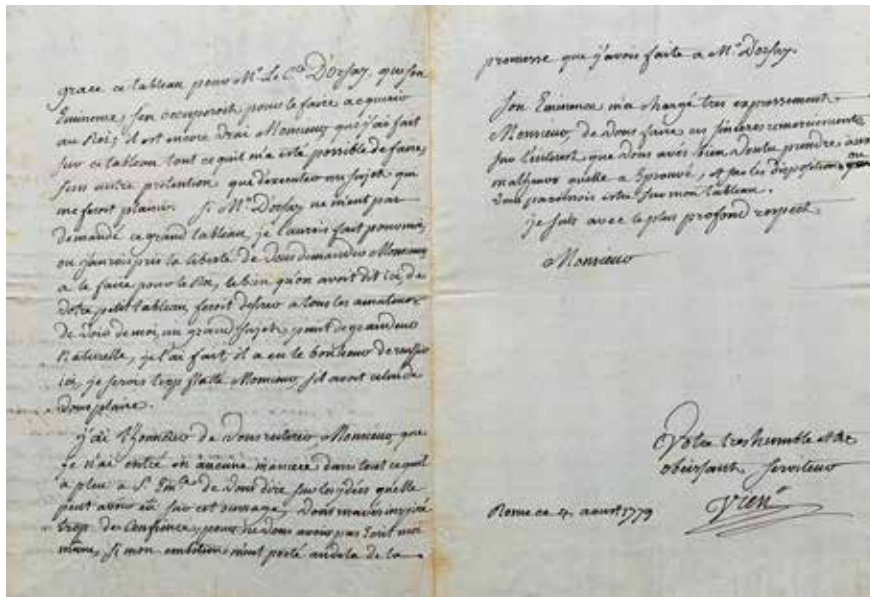 grace ce tableau pour Mr. Le Cte D'orsay, que son
Eminence, s'en occuperoit pour le faire acquerir
au Roi; il est encore vrai Monsieur que j'ai fait
sur ce tableau tout ce qu'il m'a esté possible de faire,
sans autre prétention que d'executer un sujet qui
me feroit plaisir. Si Mr. Dorsay ne m'eut pas
demandé ce grand tableau, je l'aurois fait pour moi,
ou j'aurois pris la liberté de vous demander Monsieur
a le faire pour le Roi, le bien qu'on avoit dit ici, de
votre petit tableau, feroit desirer a tous les amateurs
de voir de moi, un grand sujet, peint de grandeur
Naturelle, je l'ai fait, il a eu le bonheur de reussir
ici, je serois trop flatté Monsieur, s'il avoit celui de
vous plaire.
j'ai l'honneur de vous Monsieur, que
je n'ai entré en aucune maniere dans tout ce qu'il
a pleu a S. Emce de vous dire sur les idées qu'elle
peut avoir eü sur cet ouvrage, vous m'avés inspiré
trop de confiance, pour ne vous avoir pas écrit moi
même, si mon ambition m'eut porté au dela de la
promesse que j'avois faite a Mr. Dorsay.
Son Eminence m'a chargé tres expressement
Monsieur, de vous faire ses sincères remerciements
sur l'interest que vous avés bien voulu prendre aux
malheurs qu'elle a Eprouvé, et par les dispositions ou
vous paroissés estre sur mon tableau.
je suis avec le plus profond respect
Monsieur
Votre tres humble et tres
obeissant Serviteur
Rome ce 4. aoust 1779
Vien